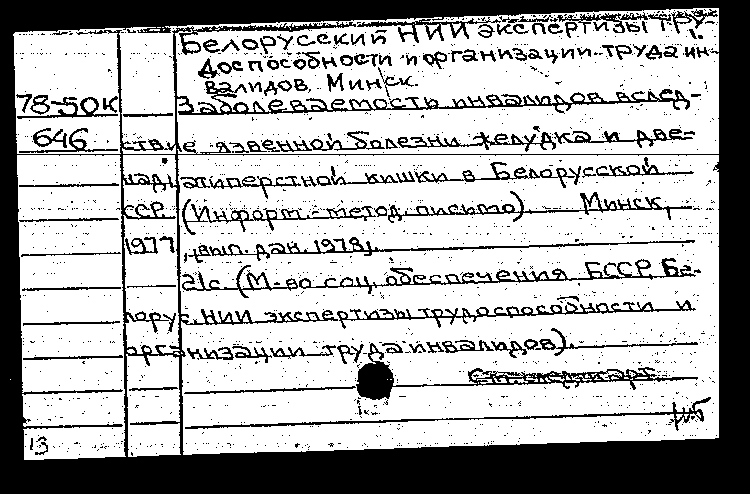 Белорусский НИИ экспертизы тру-
доспособности и организации труда ин-
валидов, Минск.
78-50к Заболеваемость инвалидов вслед-
646 ствие язвенной болезни желудка и две-
надцатиперстной кишки в Белорусской
ССР. (Информ.-метод. письмо). Минск,
1977, [вып. дан. 1978].
21с. (М-во соц. обеспечения БССР. Бе-
лорус. НИИ экспертизы трудоспособности и
организации труда инвалидов).
См. след. карт.
13